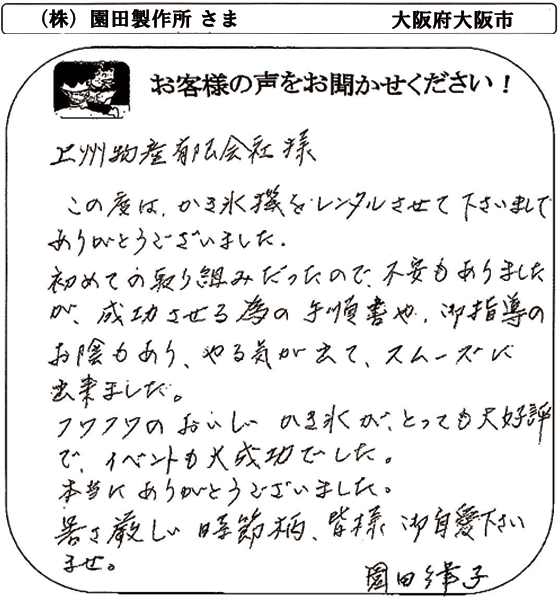 (株) 園田製作所 さま 大阪府大阪市
お客様の声をお聞かせください!
上州物産有限会社様
この度は、かき氷機をレンタルさせて下さいまして
ありがとうございました。
初めての取り組みだったので、不安もありました
が、成功させる為の手順書や、御指導の
お陰もあり、やる気が出て、スムーズに
出来ました。
フワフワのおいしいかき氷が、とっても大好評
で、イベントも大成功でした。
本当にありがとうございました。
暑さ厳しい時節柄、皆様御自愛下さい
ませ。
園田律子